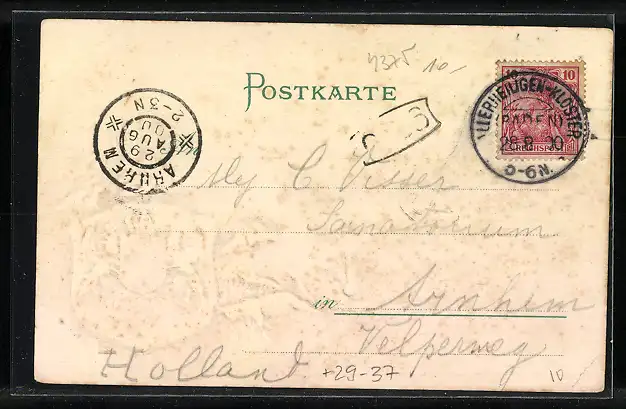 4375 10-
POSTKARTE
10
REICHSPOST
ALLERHEILIGEN-KLOSTER
(BADEN)
28.8.00
9-10N.
ARNHEM
29
AUG
00
2-3N
C. Visser
Sanatorium
in Arnhem
Velperweg
Holland
+29-37
10